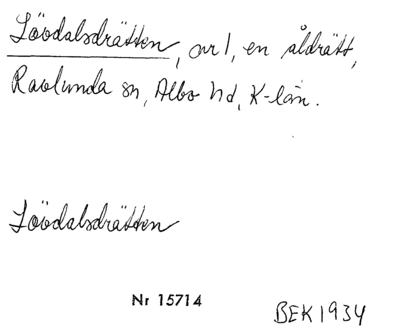 Lövdalsdrätten, ar 1, en åldrätt,
Ravlunda sn, Albo hd, K-län.
Lövdalsdrätten
Nr 15714
BEK 1934